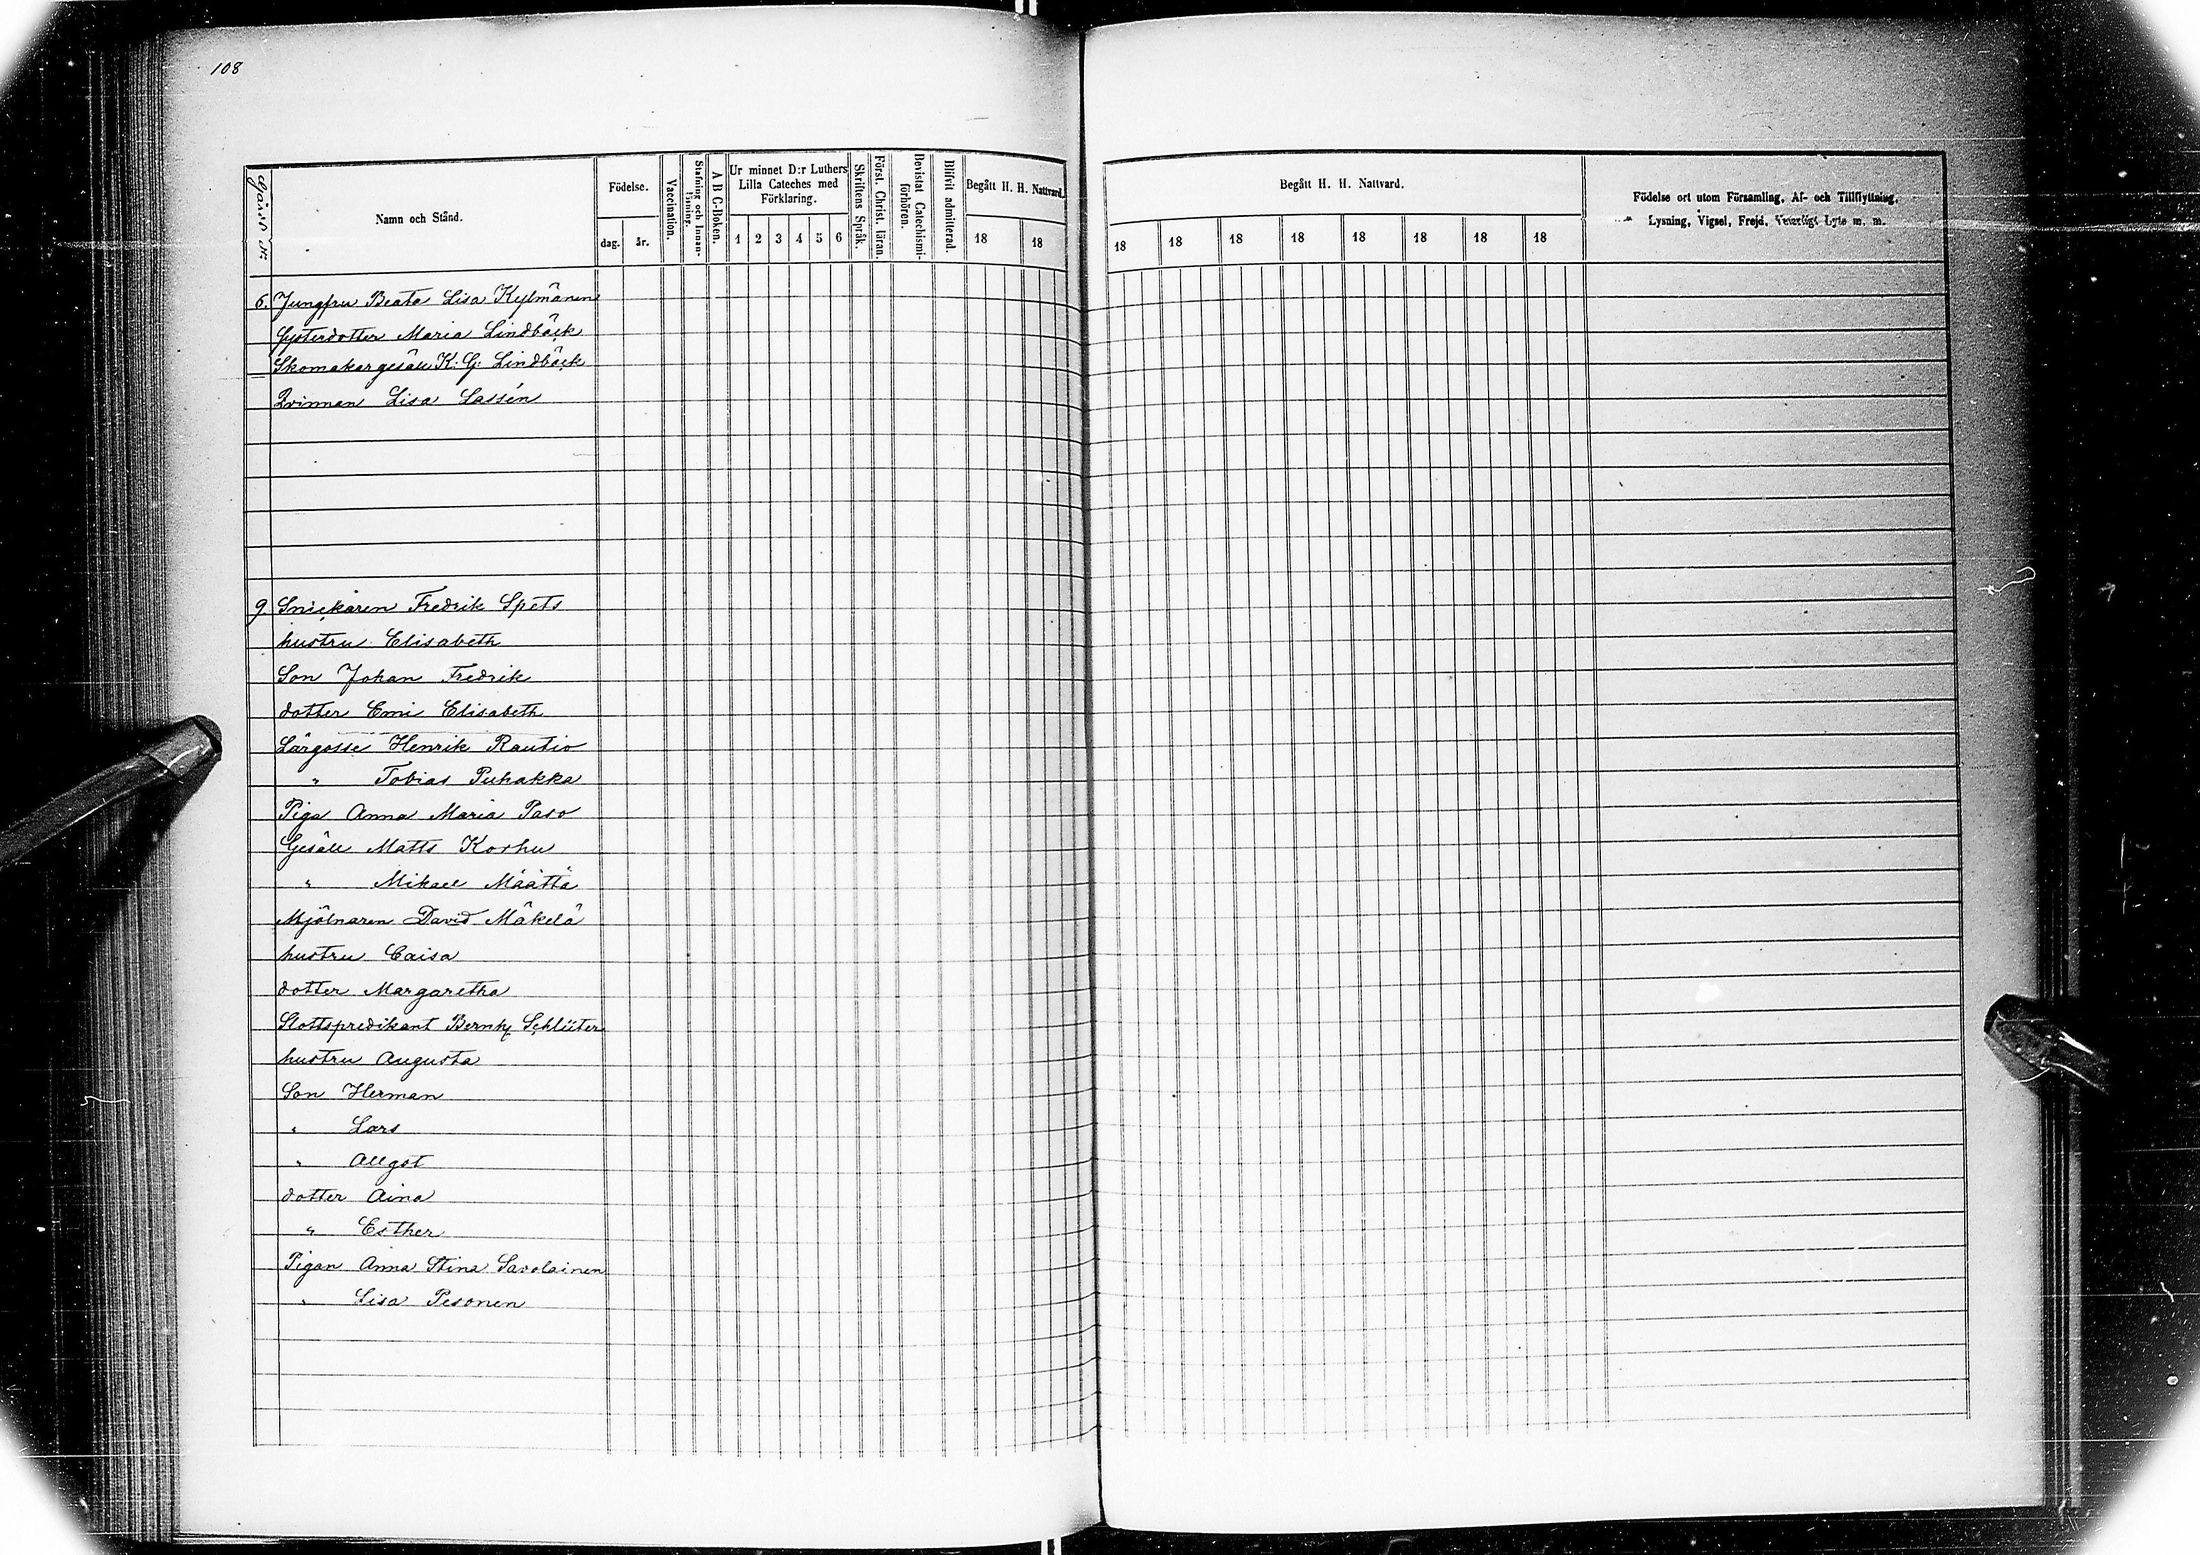 108
Gård №
Namn och Stånd.
Födelse.
dag.
år.
Vaccination.
Stafning och Innan-
läsning.
A B C-Boken.
Ur minnet D:r Luthers
Lilla Cateches med
Förklaring.
1 2 3 4 5 6
Skriftens Språk.
Först. Christ. läran.
Bevistat Catechismi-
förhören.
Blifvit admitterad.
Begått H. H. Nattvard.
18 18
Begått H. H. Nattvard.
18 18 18 18 18 18 18 18
Födelse ort utom Församling, Af- och Tillflyttning,
Lysning, Vigsel, Frejd, Veterligt Lyte m. m.
6. Jungfru Beata Lisa Kylmänen
Systerdotter Maria Lindbäck
Skomakargesäll K. G. Lindbäck
Qvinnan Lisa Lassén
9 Snickaren Fredrik Spets
hustru Elisabeth
Son Johan Fredrik
dotter Emi Elisabeth
Lärgosse Henrik Rautio
" Tobias Puhakka
Piga Anna Maria Paso
Gesäll Matts Korhu
" Mikael Määttä
Mjölnaren David Mäkelä
hustru Caisa
dotter Margaretha
Slottspredikant Bernh. Schlüter
hustru Augusta
Son Herman
" Lars
" Allgot
dotter Aina
" Esther
Pigan Anna Stina Savolainen
" Lisa Pesonen